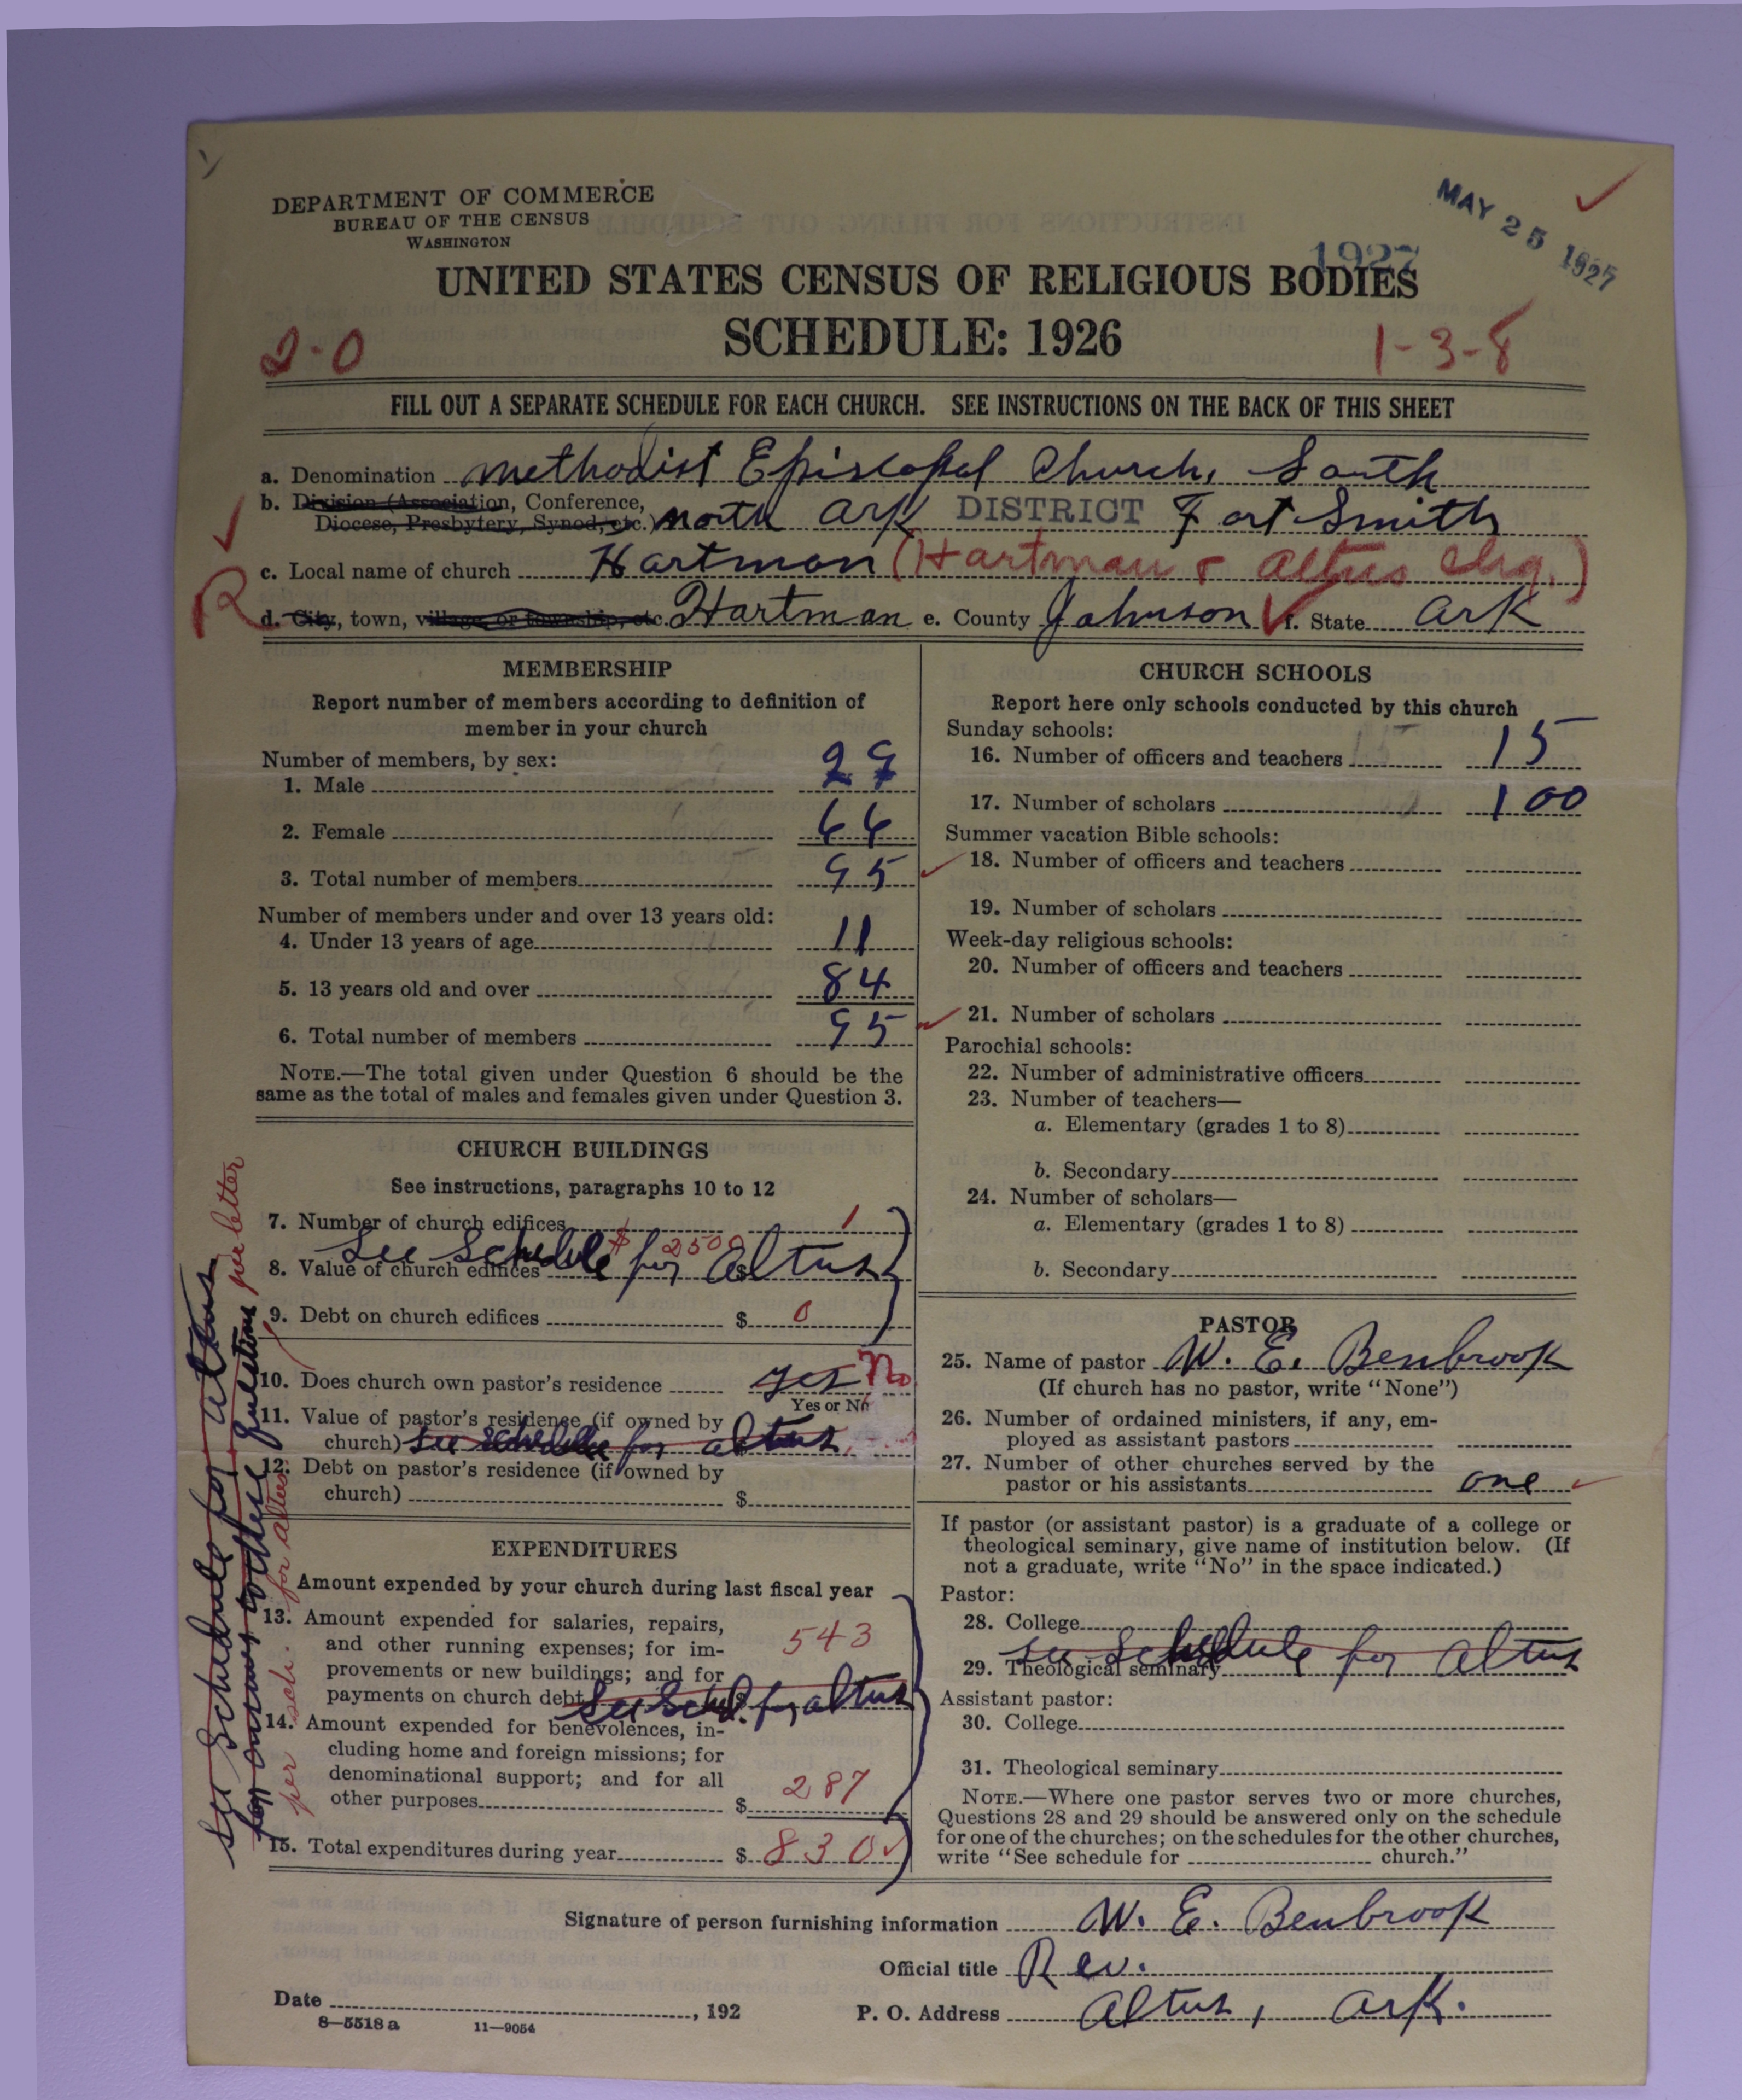 DEPARTMENT OF COMMERCE
BUREAU OF THE CENSUS
WASHINGTON
MAY 25 1927
1927
UNITED STATES CENSUS OF RELIGIOUS BODIES
SCHEDULE: 1926
2-0
1-3-8
FILL OUT A SEPARATE SCHEDULE FOR EACH CHURCH. SEE INSTRUCTIONS ON THE BACK OF THIS SHEET
a. Denomination Methodist Episcopal Church, South
b. Division (Association, Conference,
Diocese, Presbytery, Synod, etc.) North Ark DISTRICT Fort Smith
c. Local name of church Hartman (Hartman & Altus Chg.)
R
d. City, town, village, or township, etc. Hartman e. County Johnson f. State Ark
MEMBERSHIP
Report number of members according to definition of
member in your church
Number of members, by sex:
1. Male 29
2. Female 66
3. Total number of members 95
Number of members under and over 13 years old:
4. Under 13 years of age 11
5. 13 years old and over 84
6. Total number of members 95
NOTE.—The total given under Question 6 should be the
same as the total of males and females given under Question 3.
CHURCH BUILDINGS
See instructions, paragraphs 10 to 12
7. Number of church edifices 1
See Schedule for Altus
$ 2500
8. Value of church edifices $
9. Debt on church edifices $ 0
10. Does church own pastor's residence yes No
Yes or No
11. Value of pastor's residence (if owned by
church) See schedule for altus
12. Debt on pastor's residence (if owned by
church) $
EXPENDITURES
Amount expended by your church during last fiscal year
13. Amount expended for salaries, repairs,
and other running expenses; for im-
provements or new buildings; and for
payments on church debt 543
See Sched. for altus
14. Amount expended for benevolences, in-
cluding home and foreign missions; for
denominational support; and for all
other purposes $ 287
15. Total expenditures during year $ 830
See Schedule for Altus
for answers to these questions
per letter
per sch. for altus
CHURCH SCHOOLS
Report here only schools conducted by this church
Sunday schools:
16. Number of officers and teachers 15
17. Number of scholars 100
Summer vacation Bible schools:
18. Number of officers and teachers
19. Number of scholars
Week-day religious schools:
20. Number of officers and teachers
21. Number of scholars
Parochial schools:
22. Number of administrative officers
23. Number of teachers—
a. Elementary (grades 1 to 8)
b. Secondary
24. Number of scholars—
a. Elementary (grades 1 to 8)
b. Secondary
PASTOR
25. Name of pastor W. E. Benbrook
(If church has no pastor, write "None")
26. Number of ordained ministers, if any, em-
ployed as assistant pastors
27. Number of other churches served by the
pastor or his assistants one
If pastor (or assistant pastor) is a graduate of a college or
theological seminary, give name of institution below. (If
not a graduate, write "No" in the space indicated.)
Pastor:
28. College
see Schedule for Altus
29. Theological seminary
Assistant pastor:
30. College
31. Theological seminary
NOTE.—Where one pastor serves two or more churches,
Questions 28 and 29 should be answered only on the schedule
for one of the churches; on the schedules for the other churches,
write "See schedule for church."
Signature of person furnishing information W. E. Benbrook
Official title Rev.
Date , 192
P. O. Address Altus, Ark.
8—5518 a 11—9054